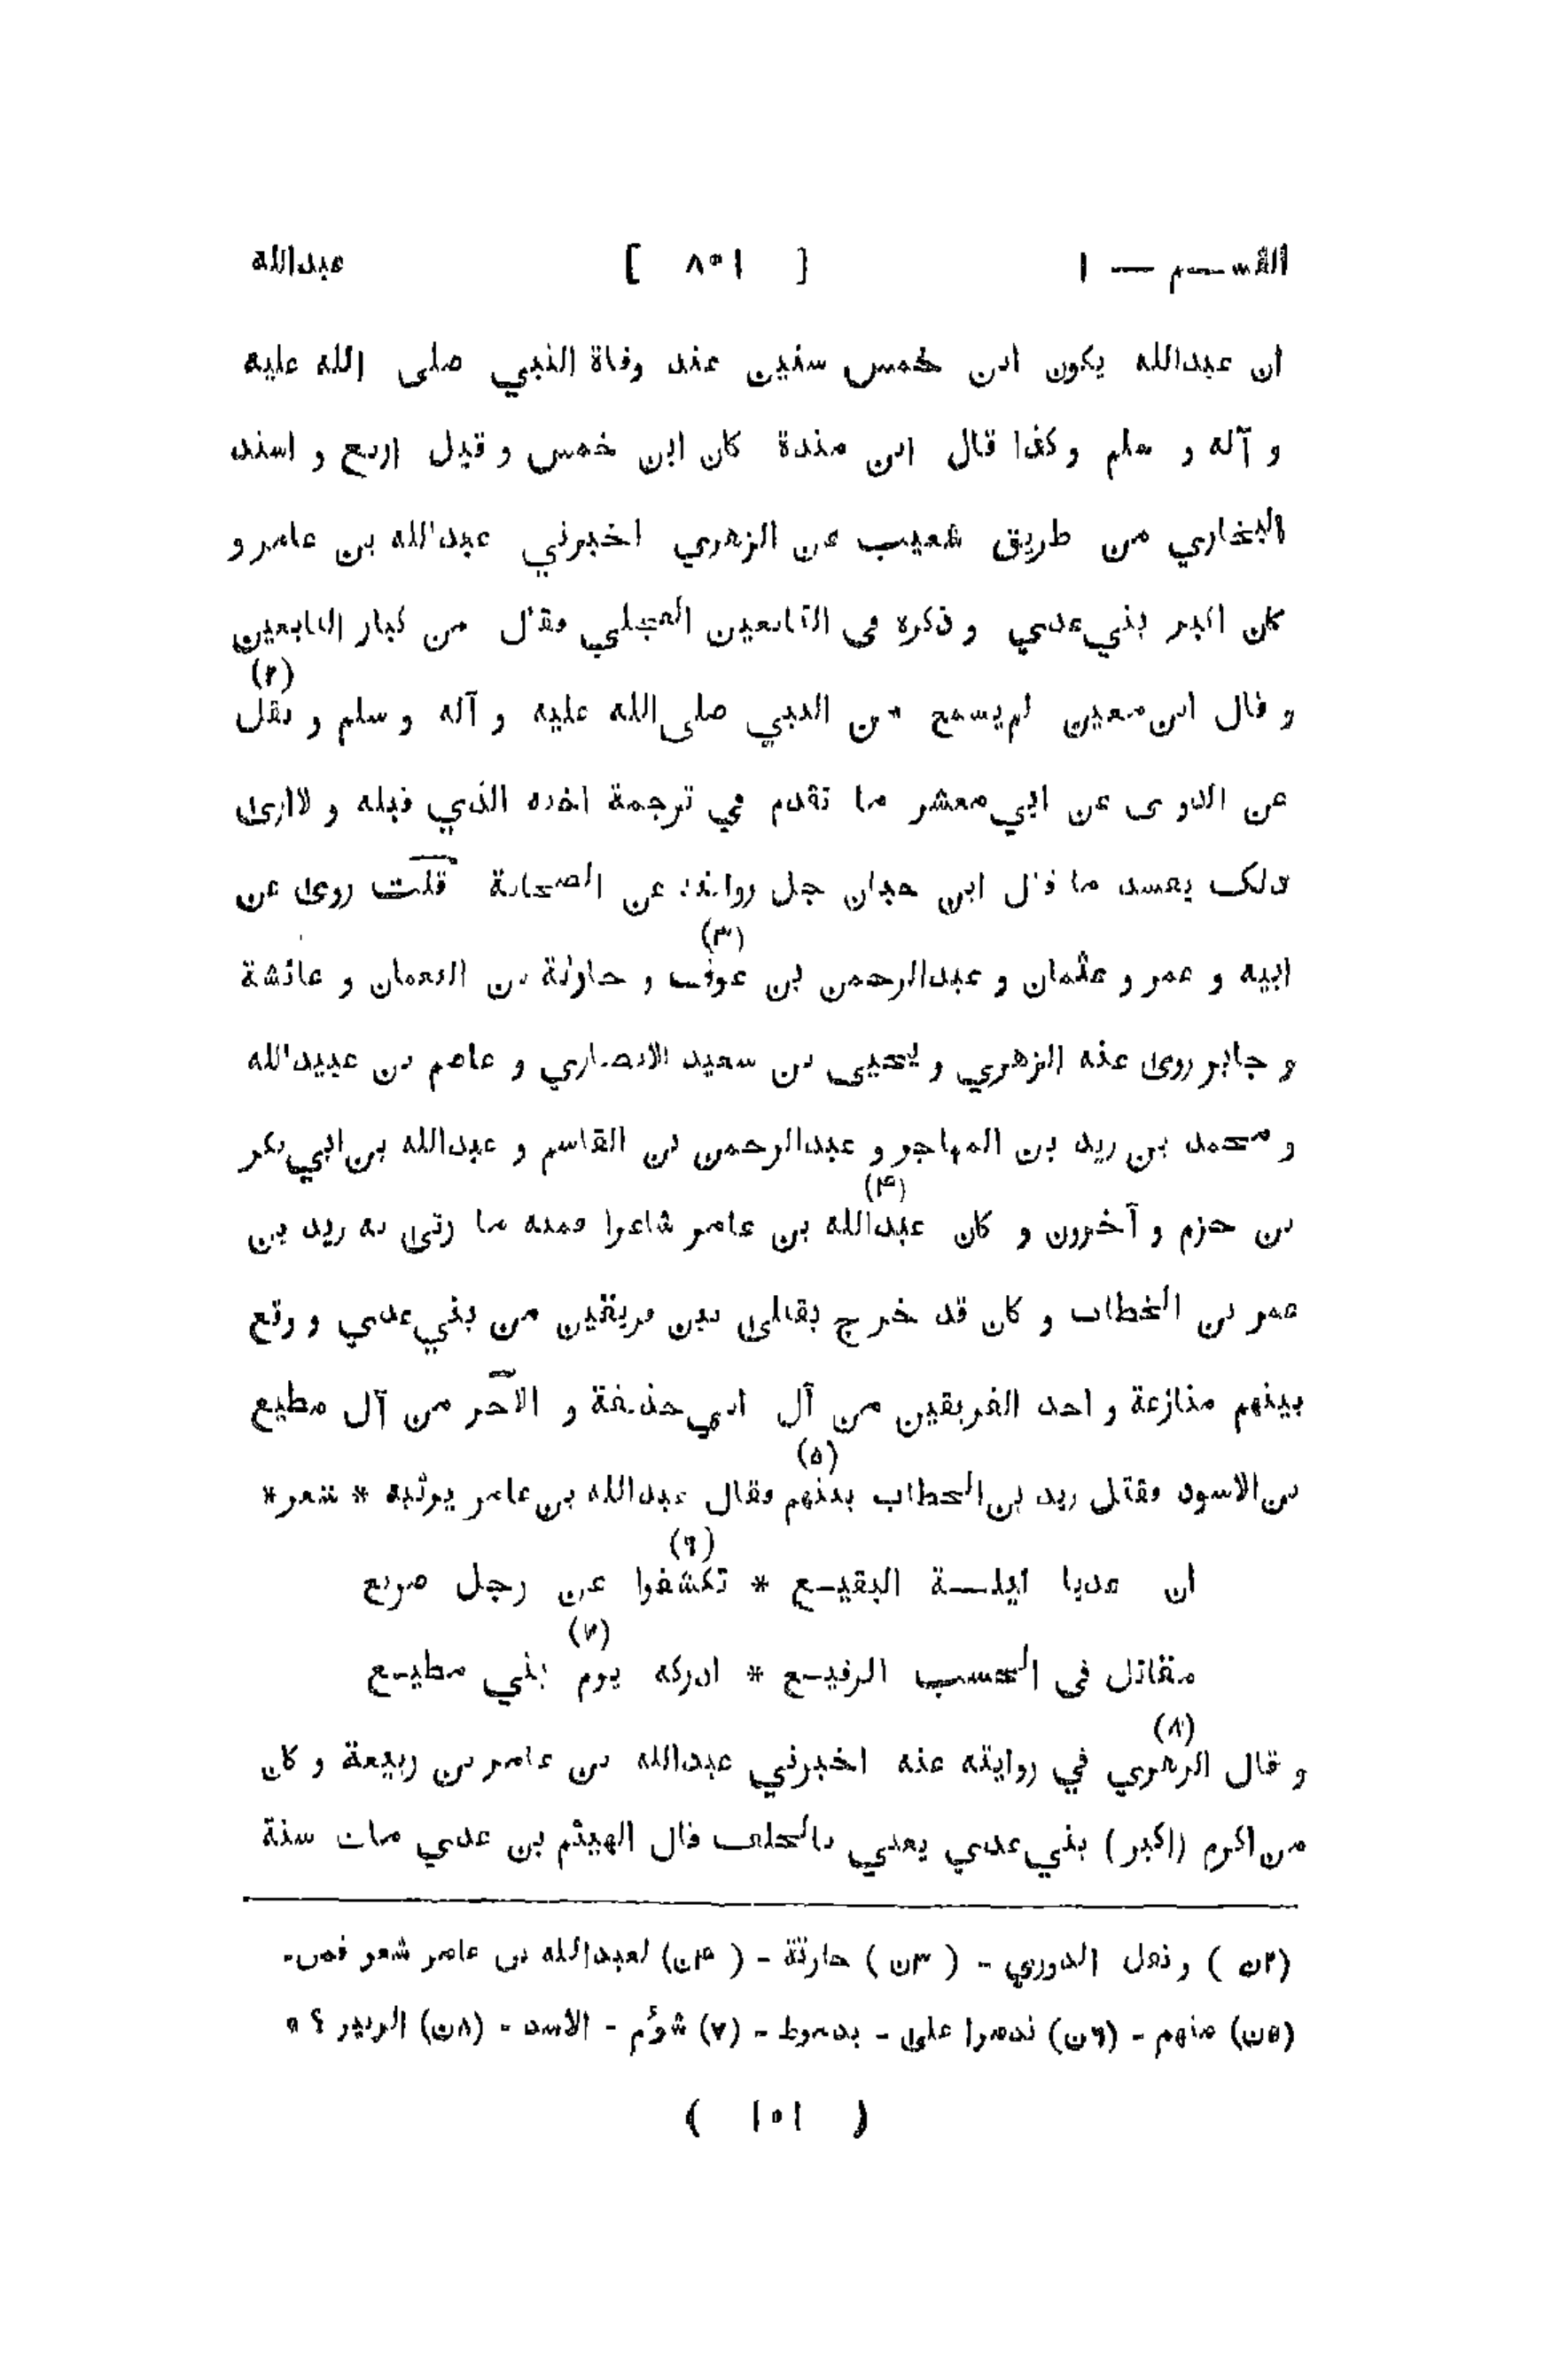 القسم — ١ [ ٨٥١ ] عبدالله
ان عبدالله يكون ابن خمس سنين عند وفاة النبي صلى الله عليه
و آله و سلم و كذا قال ابن منده كان ابن خمس و قيل اربع و اسند
البخاري من طريق شعيب عن الزهري اخبرني عبدالله بن عامر و
كان اكبر بني عدي و ذكره فى التابعين العجلي فقال من كبار التابعين
(٢)
و قال ابن معين لم يسمع من النبي صلى الله عليه و آله و سلم و نقل
عن الدوري عن ابي معشر ما تقدم في ترجمة اخيه الذي قبله و لاارى
ذلك يفسد ما قال ابن حبان جل روايته عن الصحابة قلت روى عن
(٣)
ابيه و عمر و عثمان و عبدالرحمن بن عوف و حارثة بن النعمان و عائشة
و جابر روى عنه الزهري و يحيى بن سعيد الانصاري و عاصم بن عبيدالله
و محمد بن زيد بن المهاجر و عبدالرحمن بن القاسم و عبدالله بن ابي بكر
(۴)
بن حزم و آخرون و كان عبدالله بن عامر شاعرا فمنه ما رثى به زيد بن
عمر بن الخطاب و كان قد خرج بقالى بين فريقين من بني عدي و وقع
بينهم منازعة و احد الفريقين من آل ابي حذيفة و الآخر من آل مطيع
(٥)
بن الاسود فقتل زيد بن الخطاب بينهم فقال عبدالله بن عامر يرثيه * شعر *
(٦)
ان عديا ليلــة البقيــع * تكشفوا عن رجل صريع
(٧)
مقاتل فى الحسب الرفيــع * ادركه يوم بني مطيــع
(٨)
و قال الزهري في روايته عنه اخبرني عبدالله بن عامر بن ربيعة و كان
من اكرم (اكبر) بني عدي يعني بالحلف قال الهيثم بن عدي مات سنة
(٢ن) و نقل الدوري - (٣ن) حارثة - (۴ن) لعبدالله بن عامر شعر فمن-
(٥ن) منهم - (٦ن) على - (٧) شؤم - الاسد - (٨ن) الزبير ؟ *
( ١٥١ )